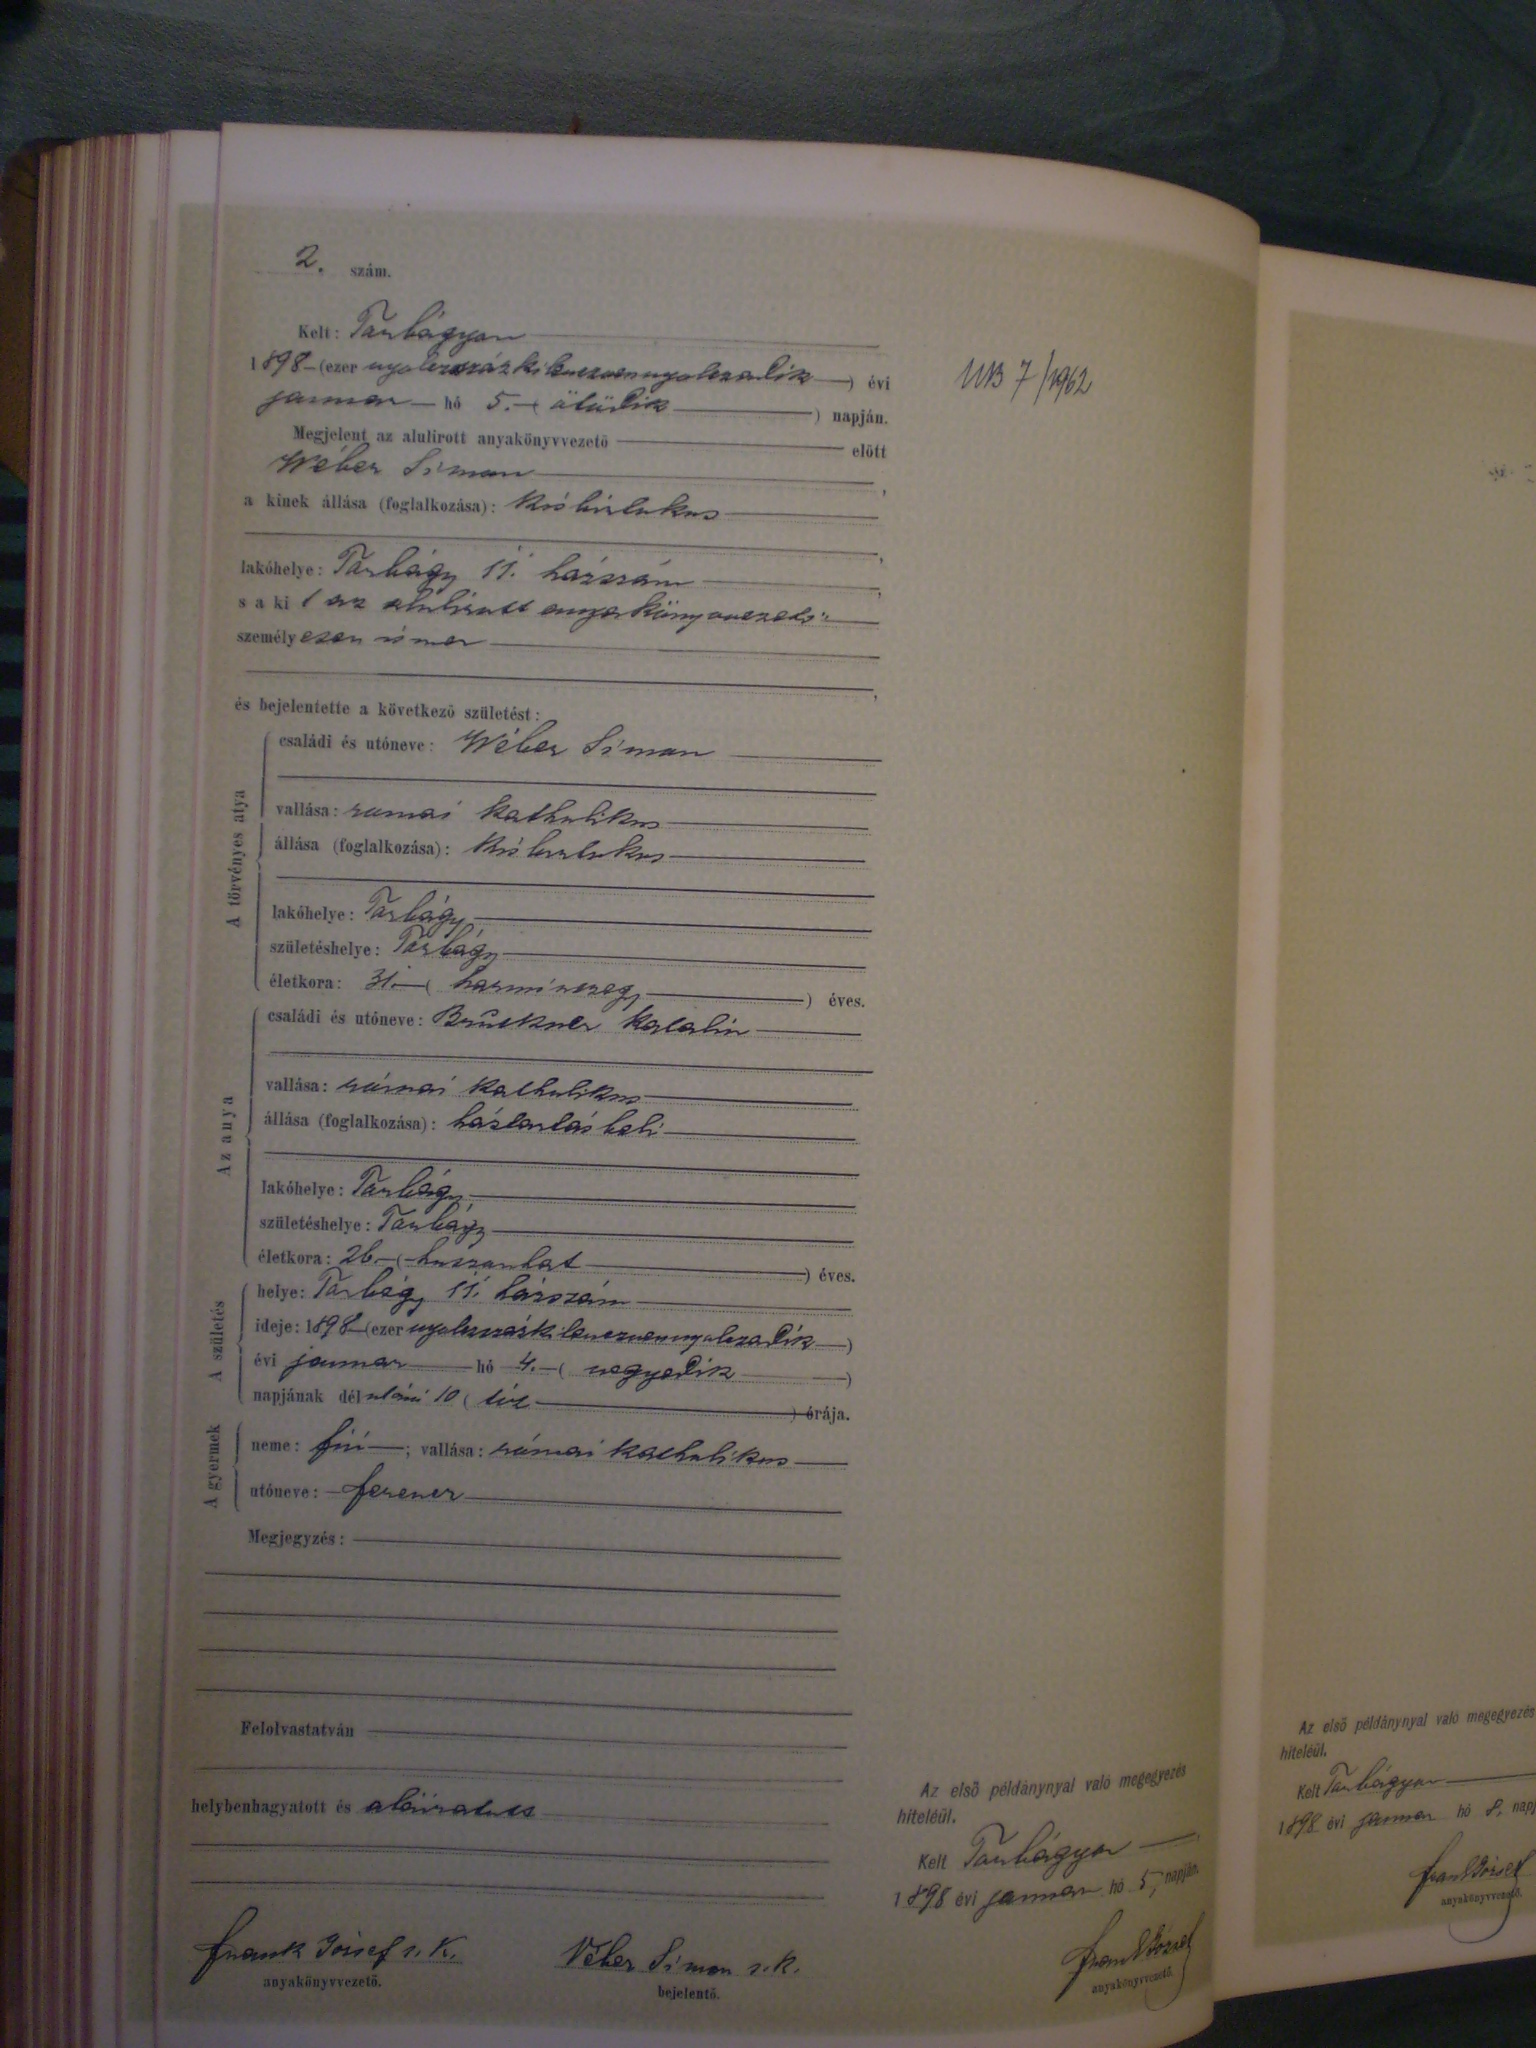 2. szám.
Kelt: Tarbágyon
1898 – (ezer nyolczszázkilenczvennyolczadik —) évi
januar — hó 5. – ( ötödik ) napján.
Megjelent az alulirott anyakönyvvezető előtt
Wéber Simon ,
a kinek állása (foglalkozása): kisbirtokos
,
lakóhelye: Tarbágy 11. házszám ,
s a kit az alulirott anyakönyvvezető
személyesen ismer
,
és bejelentette a következő születést:
A törvényes atya
családi és utóneve: Wéber Simon
vallása: romai katholikus
állása (foglalkozása): kisbirtokos
lakóhelye: Tarbágy
születéshelye: Tarbágy
életkora: 31. — ( harminczegy ) éves.
Az anya
családi és utóneve: Bruckner Katalin
vallása: római katholikus
állása (foglalkozása): háztartásbeli
lakóhelye: Tarbágy
születéshelye: Tarbágy
életkora: 26. – ( huszonhat ) éves.
A születés
helye: Tarbágy 11. házszám
ideje: 1898 – (ezer nyolczszázkilenczvennyolczadik —)
évi januar — hó 4. – ( negyedik )
napjának délutáni 10 ( tíz ) órája.
A gyermek
neme: fiú — ; vallása: római katholikus
utóneve: – Ferencz
Megjegyzés:
Felolvastatván
helybenhagyatott és aláiratott
Frank József s. k.
anyakönyvvezető.
Véber Simon s. k.
bejelentő.
UB 7/1962
Az első példánynyal való megegyezés
hiteléül.
Kelt Tarbágyon
1898 évi januar hó 5, napján.
Frank József
anyakönyvvezető.
Az első példánynyal való megegyezés
hiteléül.
Kelt Tarbágyon
1898 évi januar hó 8,
Frank József
anyakönyvvezető.